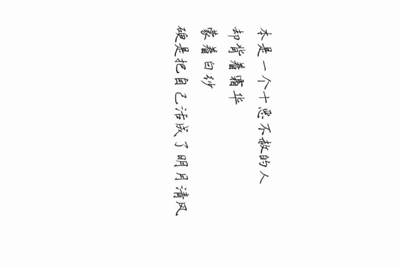 本是一个十恶不赦的人
却背着霜华
蒙着白纱
硬是把自己活成了明月清风